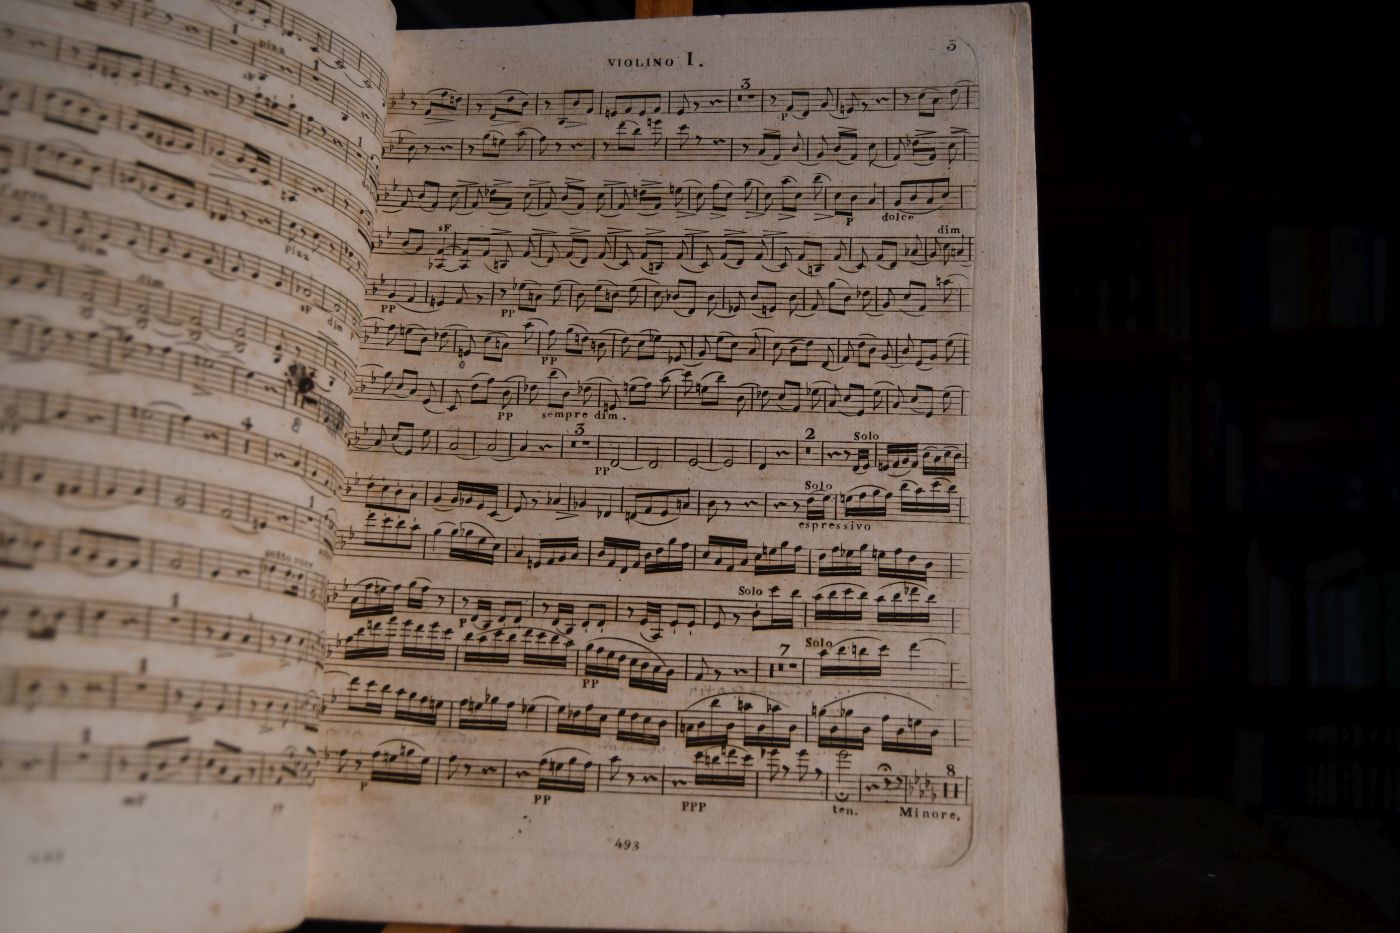 pizz
1
1
sF
1
Cresc
dim
pizz
dim
sF dim P
4 8
1
sotto voce
1
1
1
mF
PP
VIOLINO I.
3
3
P
P dolce
sF dim
PP PP
0 PP
PP sempre dim.
3 2 Solo
PP
Solo
espressivo
Solo
P
7 Solo
PP
P PP PPP ten. Minore.
8
493